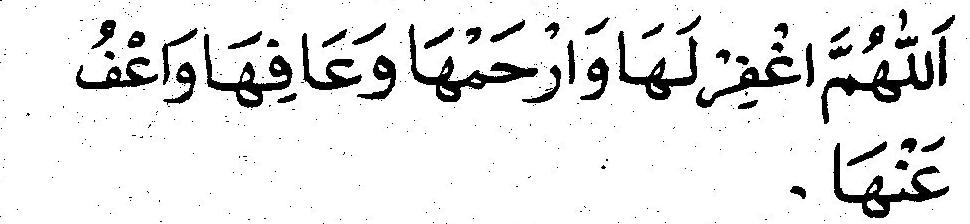 اَللّٰهُمَّ اغْفِرْ لَهَا وَارْحَمْهَا وَعَافِهَا وَاعْفُ
عَنْهَا .